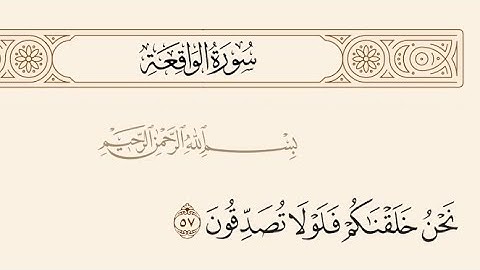 سُورَةُ الْوَاقِعَةِ
بِسْمِ اللَّهِ الرَّحْمَٰنِ الرَّحِيمِ
نَحْنُ خَلَقْنَاكُمْ فَلَوْلَا تُصَدِّقُونَ ٥٧